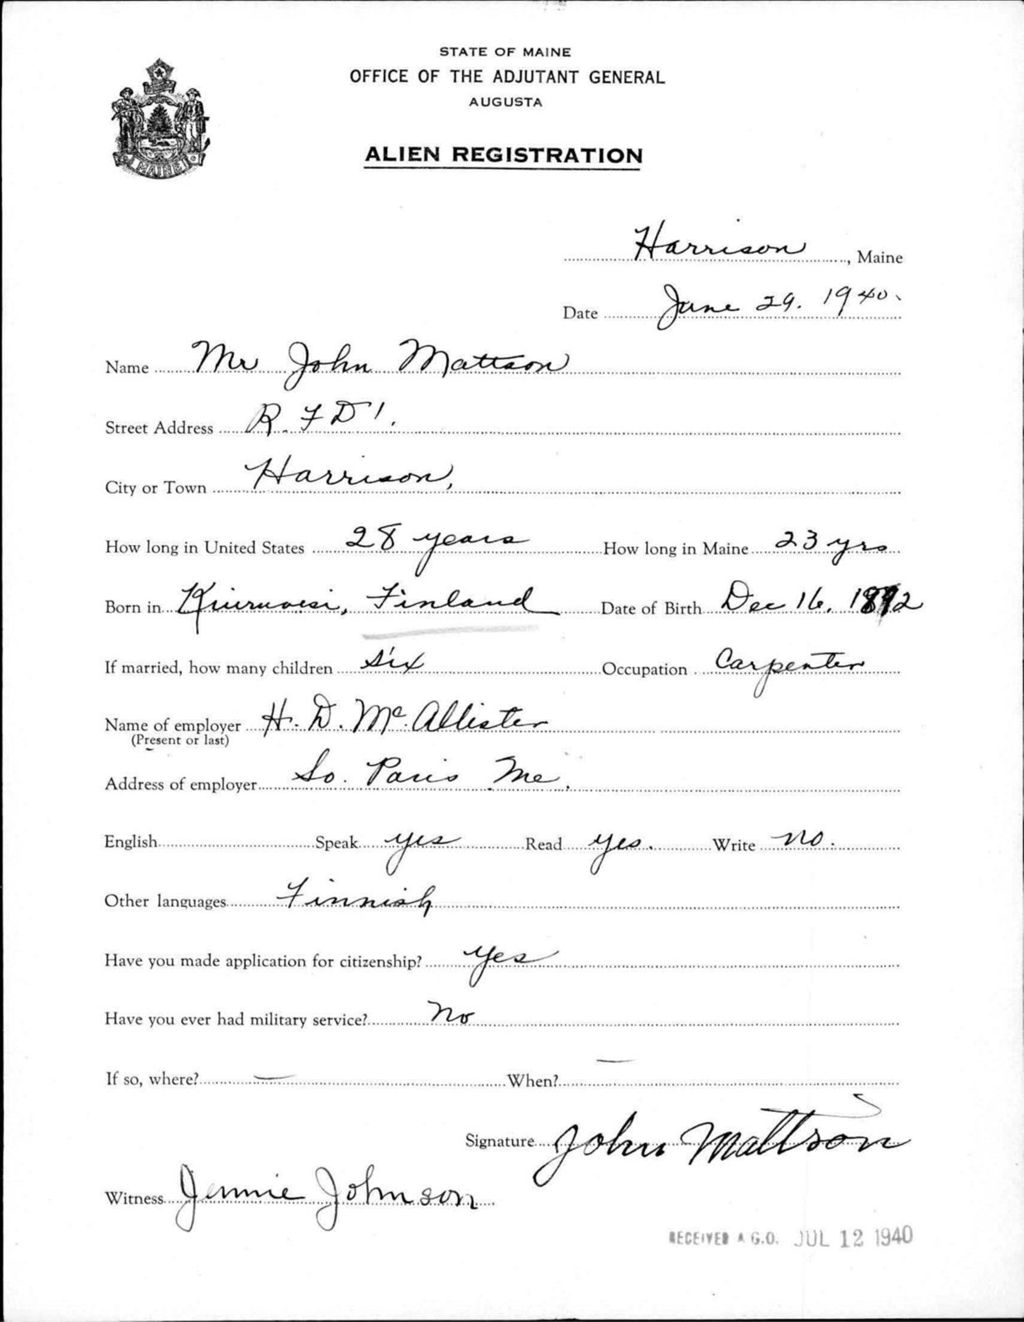 STATE OF MAINE
OFFICE OF THE ADJUTANT GENERAL
AUGUSTA
ALIEN REGISTRATION
MAINE
Harrison, Maine
Date June 29. 1940.
Name Mr John Mattson
Street Address R. F D 1.
City or Town Harrison,
How long in United States 28 years How long in Maine 23 yrs
Born in Kiuruvesi, Finland Date of Birth Dec 16, 1892
If married, how many children six Occupation Carpenter
Name of employer H. D. Mc. Allister
(Present or last)
Address of employer So. Paris Me.
English Speak yes Read yes. Write no.
Other languages Finnish
Have you made application for citizenship? yes
Have you ever had military service? No
If so, where? — When? —
Signature John Mattson
Witness Jennie Johnson
RECEIVED A.G.O. JUL 12 1940